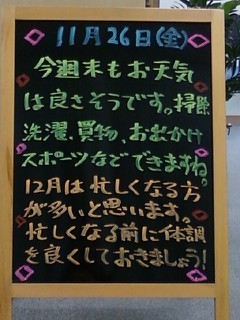 11月26日(金)
今週末もお天気
は良さそうです。掃除
洗濯、買物、おでかけ
スポーツなどできますね。
12月は忙しくなる方
が多いと思います。
忙しくなる前に体調
を良くしておきましょう!